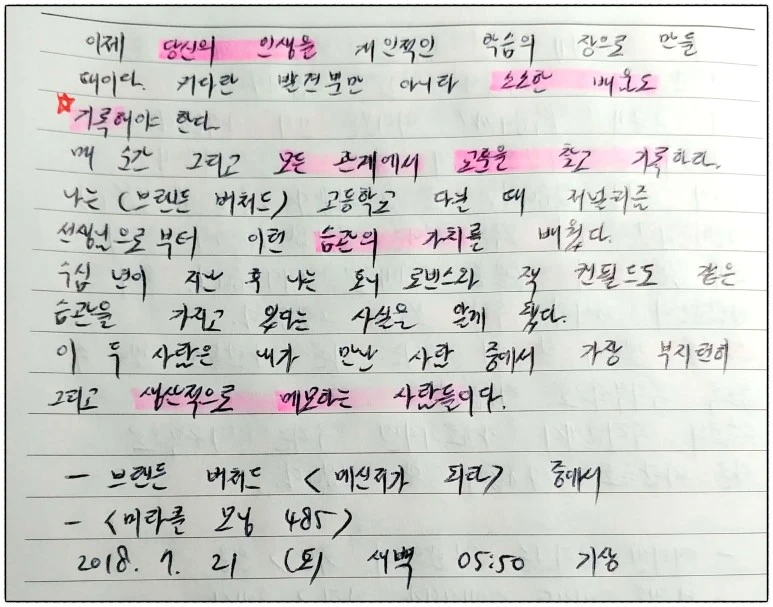 이제 당신의 인생을 개인적인 학습의 장으로 만들
때이다. 커다란 발견뿐만 아니라 소소한 배움도
기록해야 한다.
매 순간 그리고 모든 관계에서 교훈을 찾고 기록하라.
나는 (브렌든 버처드) 고등학교 다닐 때 저널리즘
선생님으로부터 이런 습관의 가치를 배웠다.
수십 년이 지난 후 나는 토니 로빈스와 잭 컨필드도 같은
습관을 가지고 있다는 사실을 알게 됐다.
이 두 사람은 내가 만난 사람 중에서 가장 부지런히
그리고 생산적으로 메모하는 사람들이다.
- 브렌든 버처드 <메신저가 되라> 중에서
- <미라클 모닝 485>
2018. 7. 21 (토) 새벽 05:50 기상